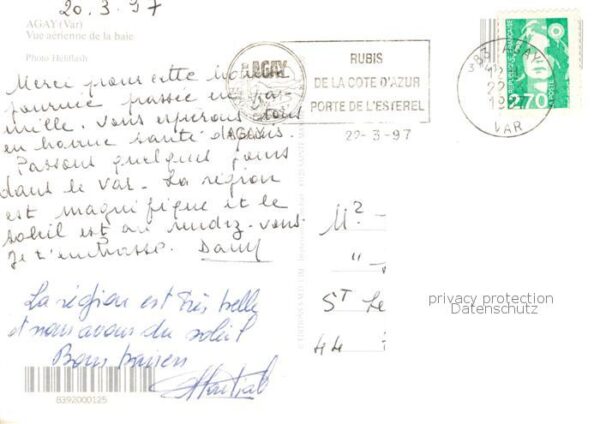 20.3.97
AGAY (Var)
Vue aérienne de la baie
Photo Héliflash
Merci pour cette
journée passée en fa-
mille. Vous espérons tous
en bonne santé
Passons quelques jours
dans le Var. La région
est magnifique et le
soleil est au rendez-vous
Je t'embrasse. Dany
La région est très belle
et nous avons du soleil
Bons baisers
8392000125
AGAY
AGAY
RUBIS
DE LA COTE D'AZUR
PORTE DE L'ESTEREL
22-3-97
83 AGAY
22
19
VAR
REPUBLIQUE FRANÇAISE
2,70
LA POSTE
M2
"
ST Le
44
privacy protection
Datenschutz